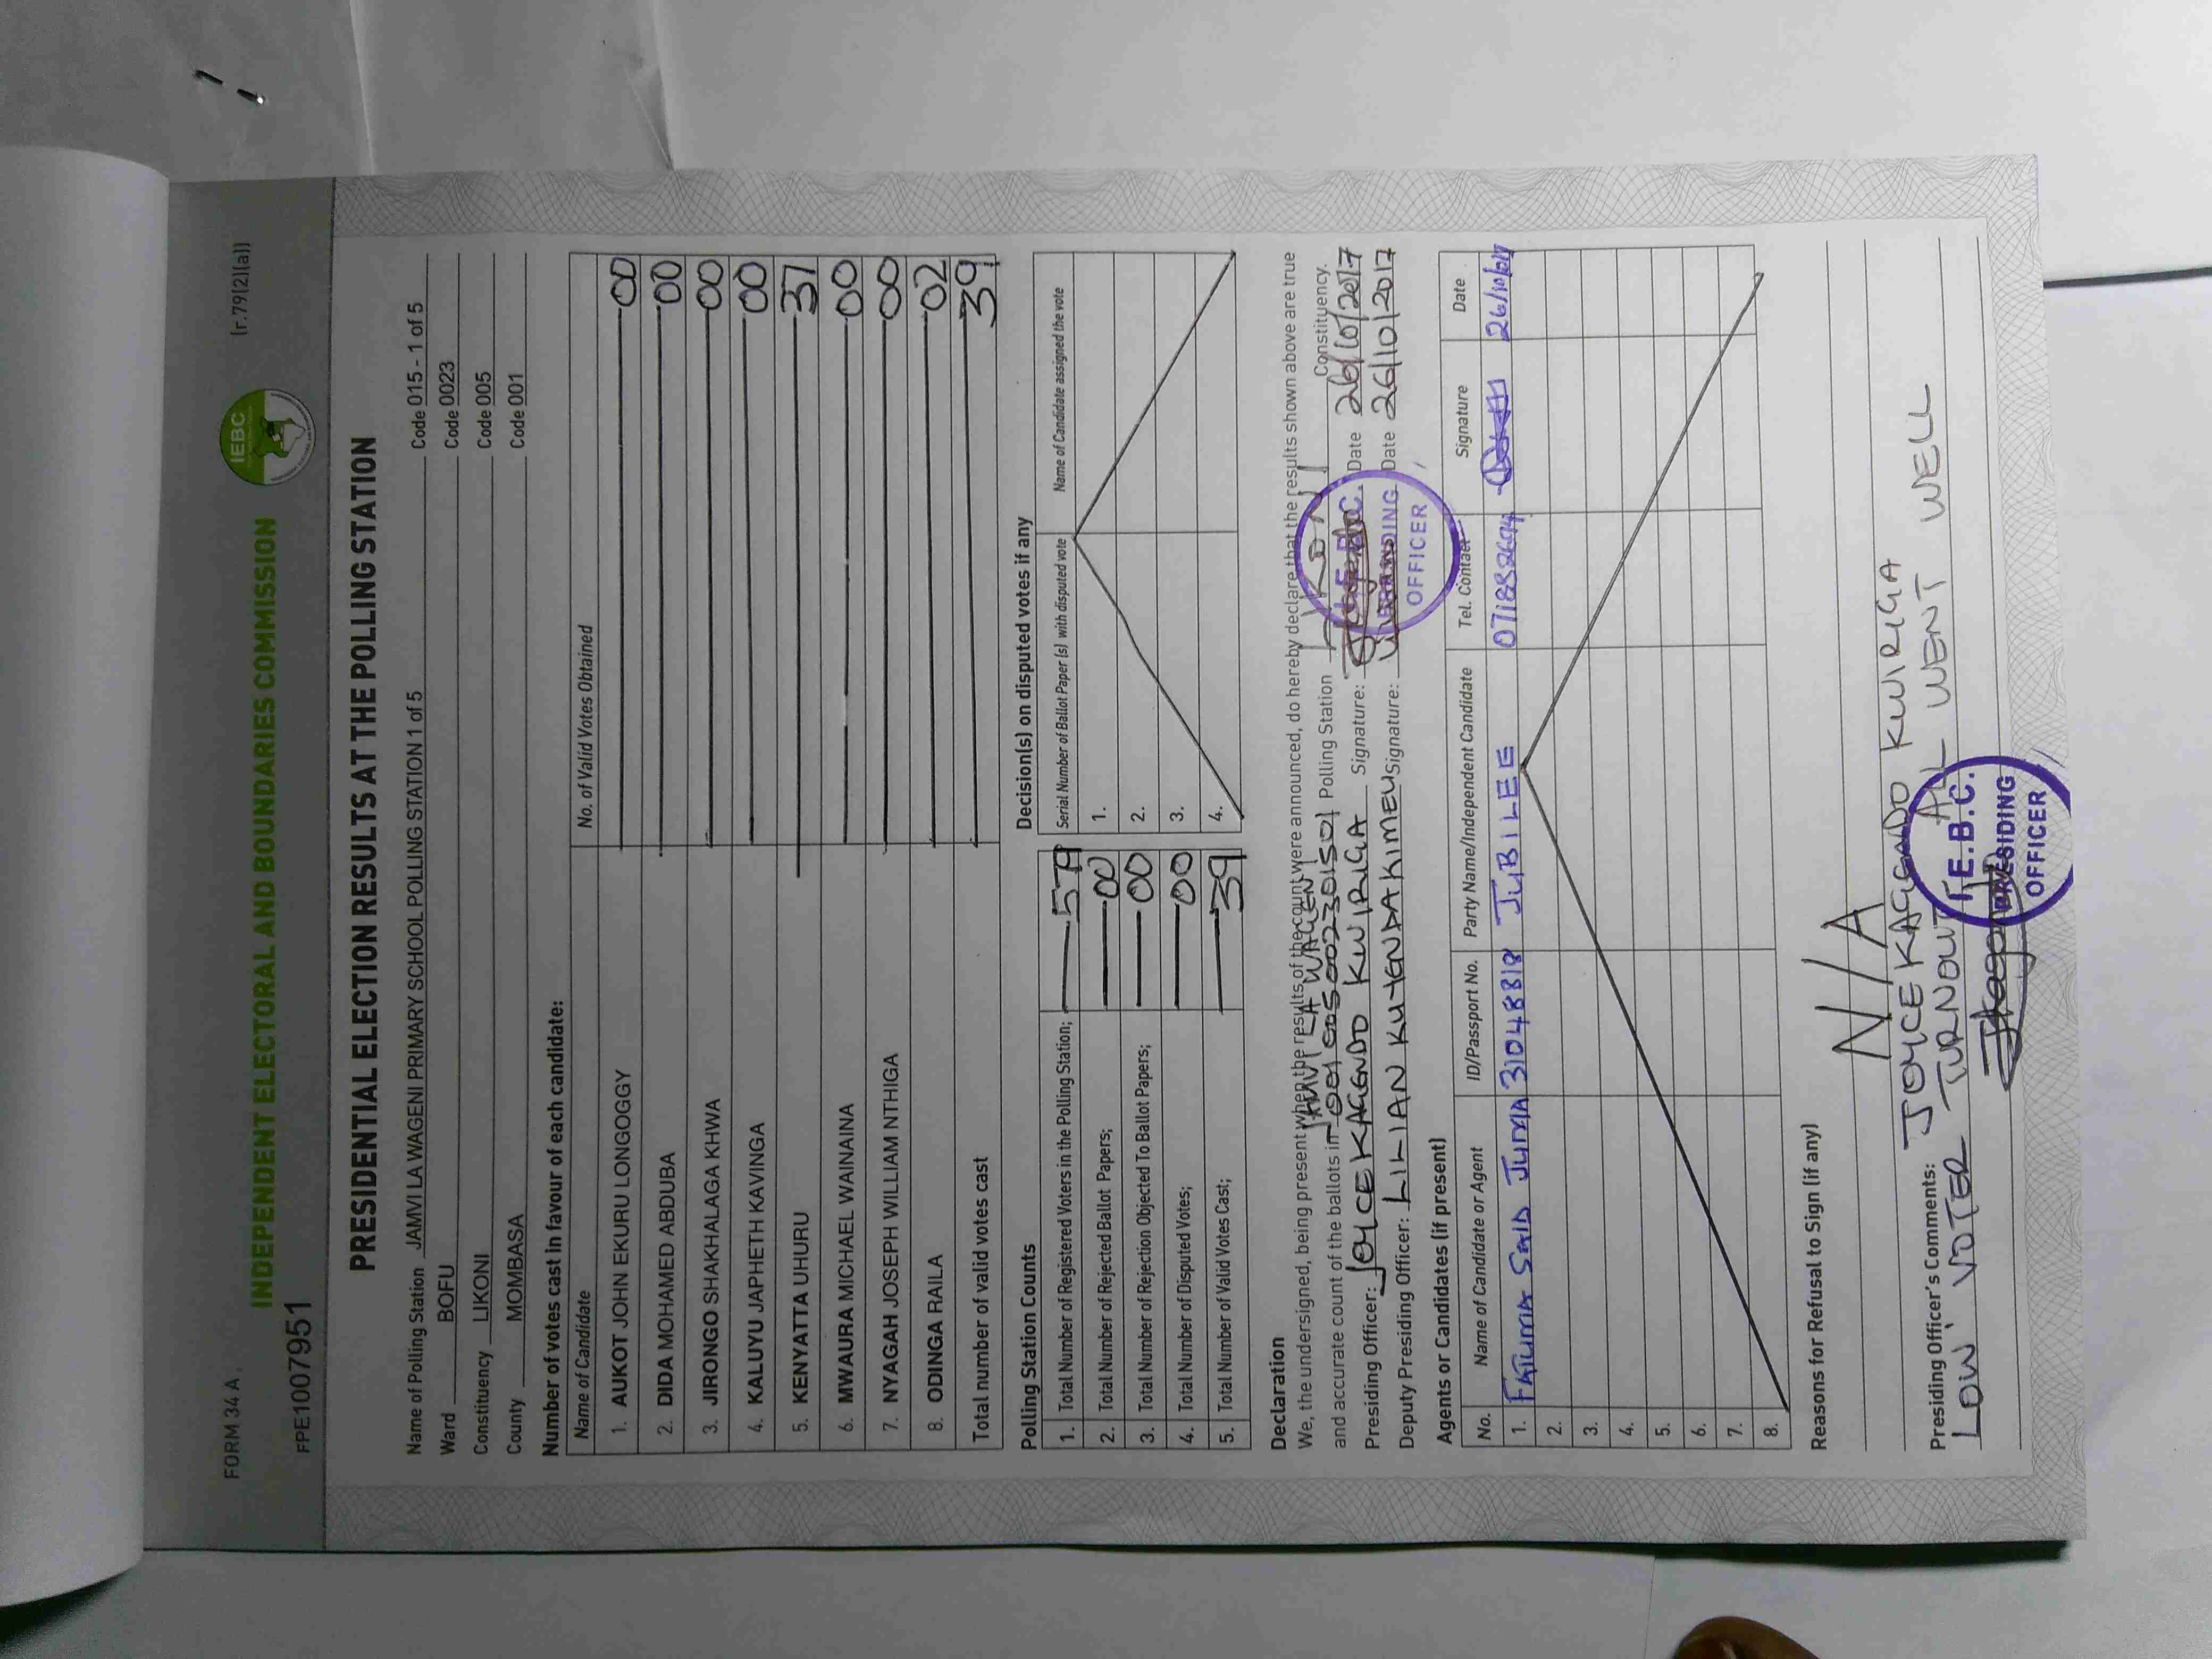 FORM 34 A
(r.79(2)(a))
IEBC
INDEPENDENT ELECTORAL AND BOUNDARIES COMMISSION
FPE1007951
PRESIDENTIAL ELECTION RESULTS AT THE POLLING STATION
Name of Polling Station JAMVI LA WAGENI PRIMARY SCHOOL POLLING STATION 1 of 5 Code 015 - 1 of 5
Ward BOFU Code 0023
Constituency LIKONI Code 005
County MOMBASA Code 001
Number of votes cast in favour of each candidate:
Name of Candidate No. of Valid Votes Obtained
1. AUKOT JOHN EKURU LONGOGGY 00
2. DIDA MOHAMED ABDUBA 00
3. JIRONGO SHAKHALAGA KHWA 00
4. KALUYU JAPHETH KAVINGA 00
5. KENYATTA UHURU 37
6. MWAURA MICHAEL WAINAINA 00
7. NYAGAH JOSEPH WILLIAM NTHIGA 00
8. ODINGA RAILA 02
Total number of valid votes cast 39
Polling Station Counts
1. Total Number of Registered Voters in the Polling Station; 579
2. Total Number of Rejected Ballot Papers; 00
3. Total Number of Rejection Objected To Ballot Papers; 00
4. Total Number of Disputed Votes; 00
5. Total Number of Valid Votes Cast; 39
Decision(s) on disputed votes if any
Serial Number of Ballot Paper (s) with disputed vote Name of Candidate assigned the vote
1.
2.
3.
4.
Declaration
We, the undersigned, being present when the results of the count were announced, do hereby declare that the results shown above are true
JAMVI LA WAGENI
and accurate count of the ballots in 001005002301501 Polling Station LIKONI Constituency.
Presiding Officer: JOYCE KAGENDO KWIRIGA Signature: Date 26/10/2017
Deputy Presiding Officer: LILIAN KUTENDA KIMEU Signature: Date 26/10/2017
I.E.B.C.
PRESIDING
OFFICER
Agents or Candidates (if present)
No. Name of Candidate or Agent ID/Passport No. Party Name/Independent Candidate Tel. Contact Signature Date
1. FATUMA SAID JUMA 31048818 JUBILEE 0718882694 26/10/017
2.
3.
4.
5.
6.
7.
8.
Reasons for Refusal to Sign (if any)
N/A
Presiding Officer's Comments: JOYCE KAGENDO KWIRIGA
LOW VOTER TURNOUT ALL WENT WELL
I.E.B.C.
PRESIDING
OFFICER